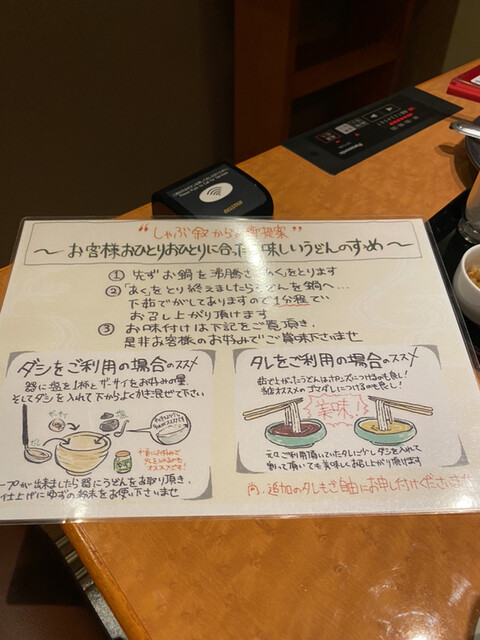 "しゃぶ叙からの御提案"
〜お客様おひとりおひとりに合った美味しいうどんのすすめ〜
① 先ずお鍋を沸騰させ「あく」をとります
② 「あく」をとり終えましたらうどんを鍋へ…
下茹でがしてありますので1分程で
お召し上がり頂けます
③ お味付けは下記をご覧頂き、
是非お客様のお好みでご賞味下さいませ
ダシをご利用の場合のススメ
器に塩を1杯とザーサイをお好みの量、
そしてダシを入れて下からよくかき混ぜて下さい
ープが出来ましたら器にうどんをお取り頂き、
仕上げにゆずの粉末をお使い下さいませ
タレをご利用の場合のススメ
茹で上がったうどんはポン酢につけるのも良し!
当店オススメのゴマダレにつけるのも良し!
美味!
元々ご利用頂いていたタレに少しダシを入れて
割って頂いても美味しくお召し上がり頂けます
尚、追加のタレもご自由にお申し付けくださいませ
Panasonic